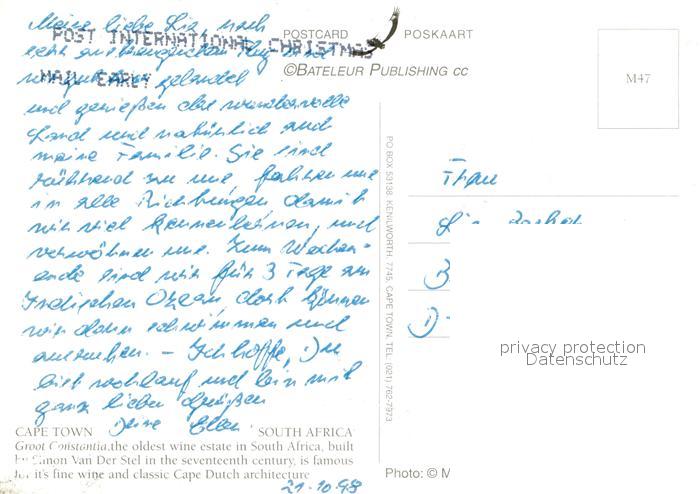 Meine liebe Lis, nach
POSTCARD POSKAART
POST INTERNATIONAL CHRISTMAS
MAIL EARLY
©BATELEUR PUBLISHING CC
M47
gelandet
und genießen das wundervolle
Land und natürlich auch
meine Familie. Sie sind
rührend zu uns, fahren uns
in alle Richtungen damit
wir viel kennenlernen, und
verwöhnen uns. Zum Wochen-
ende sind wir für 3 Tage am
Indischen Ozean dort können
wir dann schwimmen und
ausruhen. – Ich hoffe, Du
bist wohlauf und bin mit
ganz lieben Grüßen
Deine Ellen
Frau
B
D
PO BOX 53138, KENILWORTH, 7745, CAPE TOWN. TEL. (021) 762-7973
privacy protection
Datenschutz
CAPE TOWN SOUTH AFRICA
Groot Constantia, the oldest wine estate in South Africa, built
by Simon Van Der Stel in the seventeenth century, is famous
for it's fine wine and classic Cape Dutch architecture
Photo: © M
21-10-98